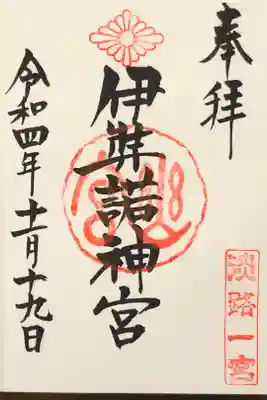 奉拝
淡路一宮
伊弉諾神宮
令和四年十一月十九日